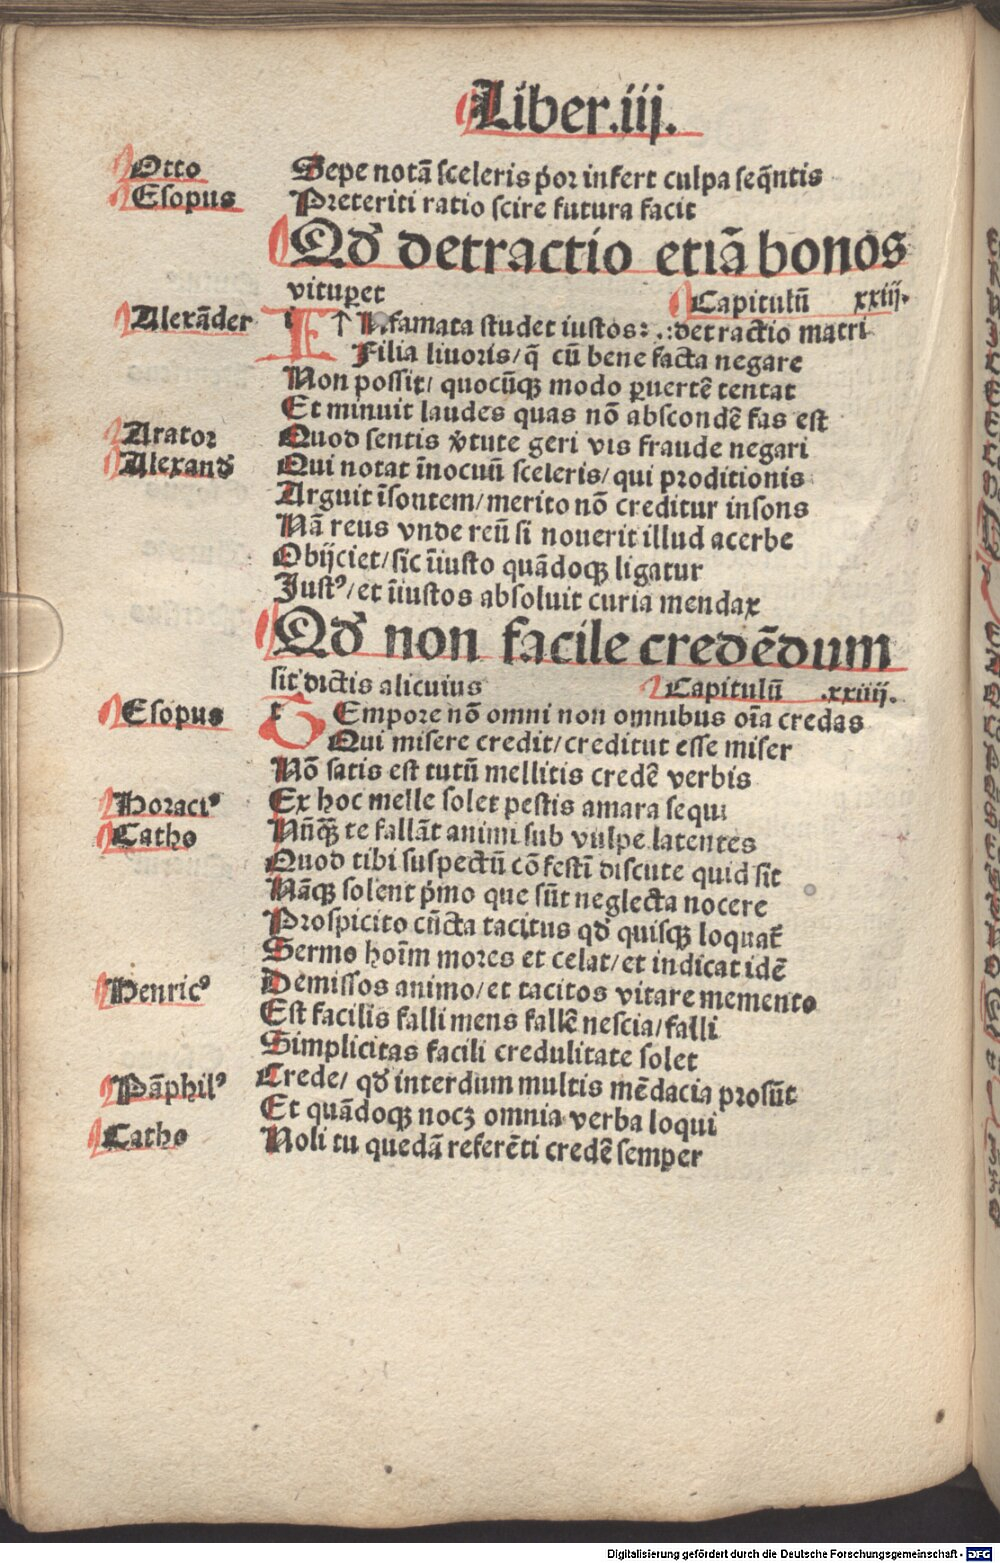 Liber.iij.
Otto Sepe notā sceleris p̄or infert culpa seq̄ntis
Esopus Preteriti ratio scire futura facit
Qd̛ detractio etiā bonos
vituꝑet Capitulū xxiij.
Alexāder i I ↑ Nfamata studet iustos: .:detractio matri
Filia liuoris/ q̄ cū bene facta negare
Non possit/ quocūqꝫ modo ꝑuertē tentat
Et minuit laudes quas nō abscondē fas est
Arator Quod sentis v̓tute geri vis fraude negari
Alexand̛ Qui notat īnocuū sceleris/ qui proditionis
Arguit īsontem/ merito nō creditur insons
Nā reus vnde reū si nouerit illud acerbe
Obijciet/ sic īiusto quādoqꝫ ligatur
Justꝰ/ et īiustos absoluit curia mendax
Qd̛ non facile credēdum
sit dictis alicuius Capitulū .xxiiij.
Esopus t T Empore nō omni non omnibus oīa credas
Qui misere credit/ creditut esse miser
Nō satis est tutū mellitis credē verbis
Horaciꝰ Ex hoc melle solet pestis amara sequi
Catho Nūqꝫ̄ te fallāt animi sub vulpe latentes
Quod tibi suspectū cōfestī discute quid sit
Nāqꝫ solent p̓mo que sūt neglecta nocere
Prospicito cūcta tacitus qd̛ quisqꝫ loquat᷑
Sermo hoīm mores et celat/ et indicat idē
Henricꝰ Demissos animo/ et tacitos vitare memento
Est facilis falli mens fallē nescia/ falli
Simplicitas facili credulitate solet
Pāphilꝰ Crede/ qd̛ interdum multis mēdacia prosūt
Et quādoqꝫ nocꝫ omnia verba loqui
Catho Noli tu quedā referēti credē semper
Digitalisierung gefördert durch die Deutsche Forschungsgemeinschaft - DFG